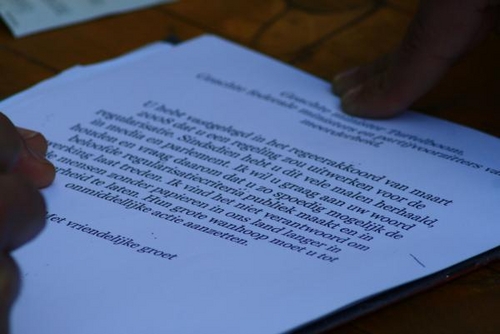 Geachte Minister Turtelboom,
Geachte federale ministers en partijvoorzitters van
meerderheid,
U hebt vastgelegd in het regeerakkoord van maart
2008 dat u een regeling zou uitwerken voor de
regularisatie. Sindsdien hebt u dit vele malen herhaald,
in media en parlement. Ik wil u graag aan uw woord
houden en vraag daarom dat u zo spoedig mogelijk de
beloofde regularisatiecriteria publiek maakt en in
werking laat treden. Ik vind het niet verantwoord om
de mensen zonder papieren in ons land langer in
te laten. Hun grote wanhoop moet u tot
onmiddellijke actie aanzetten.
Met vriendelijke groet